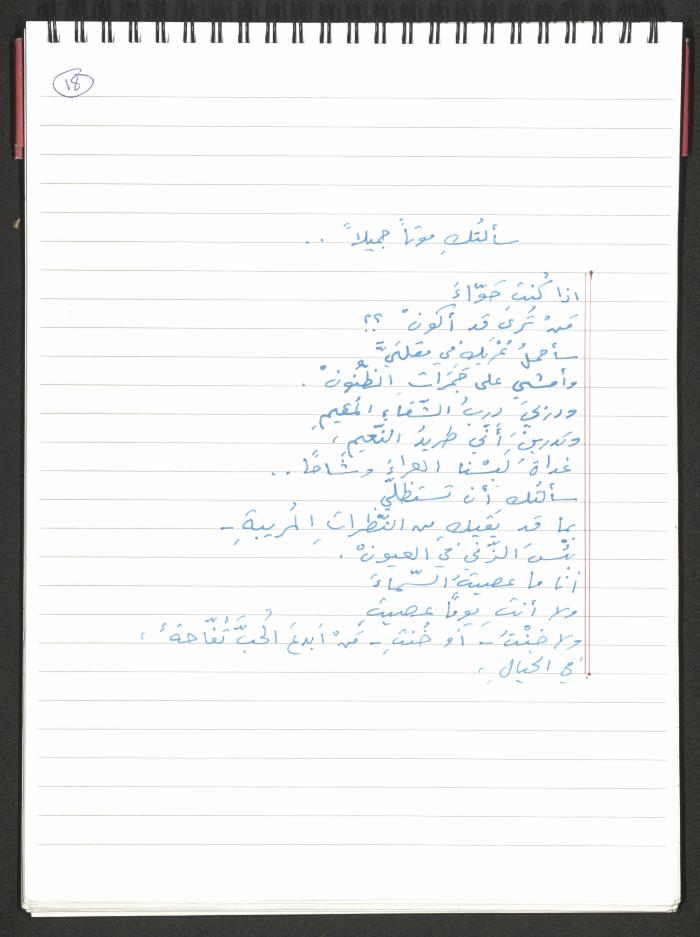 ١٨
سألتُكِ موتاً جميلاً ..
اذا كُنتِ حَوّاءَ
مَنْ تُرى قد أكونْ ؟؟
سأحملُ عُرْيَكِ في مقلتيَّ
وأمشي على جَمَراتِ الظّنُونْ .
ودربيَ دربُ الشّقاءِ المُقيمِ
وتدرينَ أنّي طريدُ النّعيم ،
غداةَ لَبِسْنا العراءَ وشاحًا ..
سألتُك أن تستظلّي
بما قد يَقيكِ من النّظراتِ المُريبةِ -
بئْسَ الزّنى في العيونْ .
أنا ما عصيتُ السّماءَ
ولا أنتِ يومًا عصيتِ
ولا خنْتُ - أو خُنتِ - مَنْ أبدعَ الحُبَّ تُفّاحةً ،
في الخيالِ ،